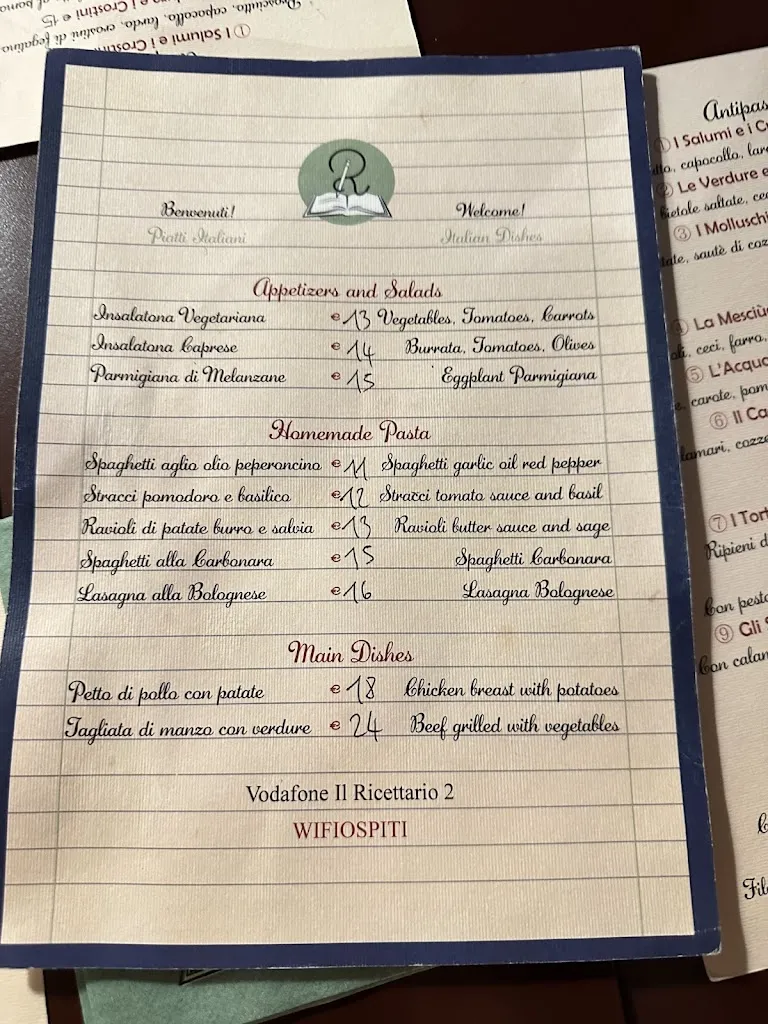 ① I Salumi e i Crostini e 15
Prosciutto, capocollo, lardo, crostini di fegatino,
R
Benvenuti! Welcome!
Piatti Italiani Italian Dishes
Appetizers and Salads
Insalatona Vegetariana € 13 Vegetables, Tomatoes, Carrots
Insalatona Caprese € 14 Burrata, Tomatoes, Olives
Parmigiana di Melanzane € 15 Eggplant Parmigiana
Homemade Pasta
Spaghetti aglio olio peperoncino € 11 Spaghetti garlic oil red pepper
Stracci pomodoro e basilico € 12 Stracci tomato sauce and basil
Ravioli di patate burro e salvia € 13 Ravioli butter sauce and sage
Spaghetti alla Carbonara € 15 Spaghetti Carbonara
Lasagna alla Bolognese € 16 Lasagna Bolognese
Main Dishes
Petto di pollo con patate € 18 Chicken breast with potatoes
Tagliata di manzo con verdure € 24 Beef grilled with vegetables
Vodafone Il Ricettario 2
WIFIOSPITI
Antipas
① I Salumi e i C
capocollo, lar
② Le Verdure e
Bietole saltate, ce
③ I Molluschi
sautè di coz
④ La Mesciù
ceci, farro,
⑤ L'Acqua
carote, pom
⑥ Il Ca
cozze
⑦ I Tort
Ripieni d
Con pesto
⑨ Gli
Con calam
Fil